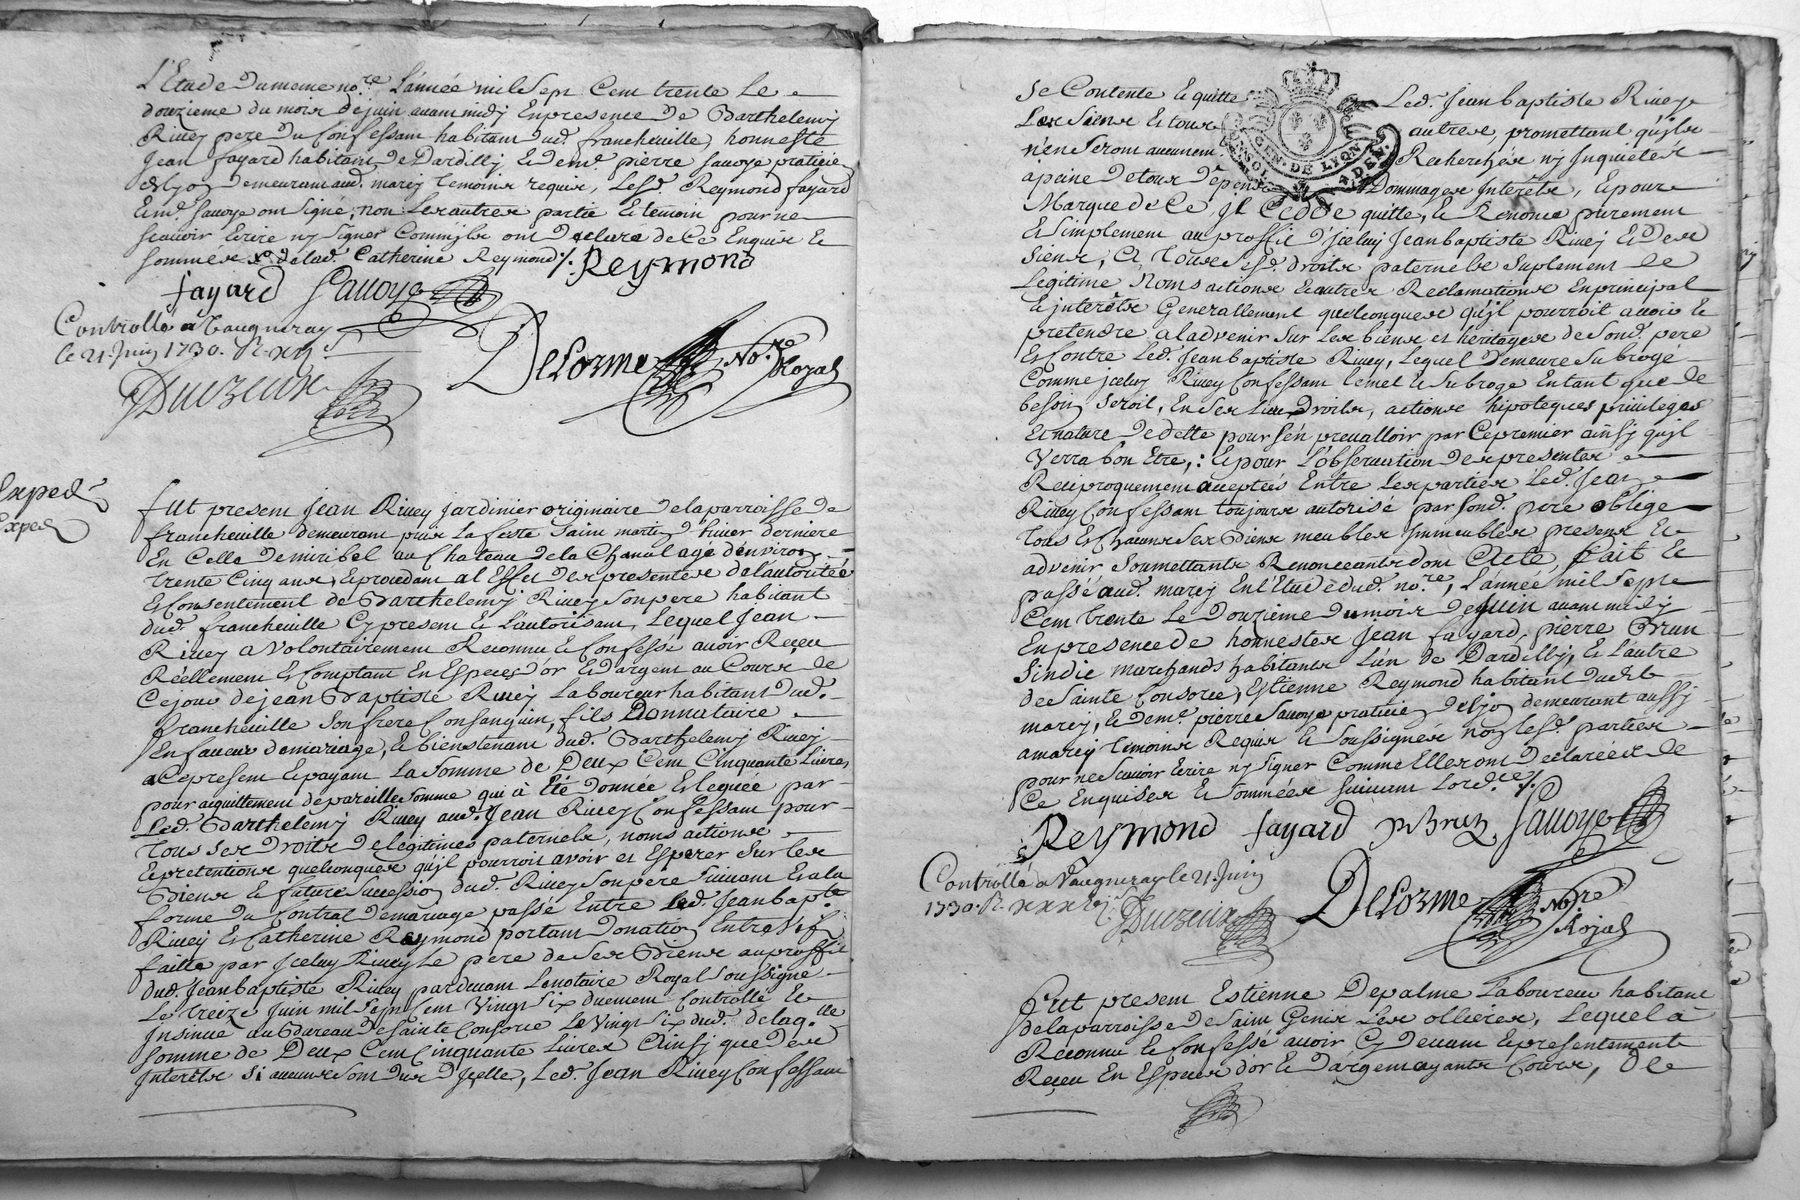 L'Etude du meme no.re L'année mil Sept Cent trente Le
douzieme du mois de juin avant midy En presence de Barthelemy
Rivey pere du Confessant habitant dud. francheville, honneste
Jean fayard habitant de Dardilly & dem.e pierre Savoye praticien
de lyon demeurant aud. marcy temoins requis, Lesd. Reymond fayard
& m.e Savoye ont Signé, non Les autres partie & temoin pour ne
Scavoir Ecrire ny Signer Comm'ils ont declaré de Ce Enquis &
Sommés delad. Catherine Reymond ./. Reymond
fayard Savoye
Controllé a Vaugneray
le 21. Juin 1730. R. xij s
Duvzeux
Delorme No.re Royal
Exped.
Exped.
fut present Jean Rivey jardinier originaire de la parroisse de
francheville demeurant puis La feste Saint martin d'hiver derniere
En Celle de miribel au Chateau de la Chanal agé d'environ
trente Cinq ans, & procedant a l'Effet des presentes de l'autorité
& Consentement de Barthelemy Rivey Son pere habitant
dud. francheville Cy present & L'autorisant, Lequel Jean
Rivey a Volontairement Reconnu & Confessé avoir Reçeu
Réellement & Comptant En Especes d'or & d'argent au Cours de
Ce jour de jean Baptiste Rivey Laboureur habitant dud.
francheville Son frere Consanguin, fils Donnataire
En faveur de mariage, & bienstenant dud. Barthelemy Rivey
a Ce present & payant La Somme de Deux Cent Cinquante Livres
pour aiquittement de pareille Somme qui à Eté donnée & leguée par
Led. Barthelemy Rivey aud. Jean Rivey Confessant pour
tous Ses Droits de legitimes paternels, noms actions
& pretentions quelconques qu'jl pourroit avoir et Esperer Sur les
Biens & future Succession dud. Rivey Son pere Suivant & a la
forme du Contrat de mariage passé Entre Led. Jean bap.te
Rivey & Catherine Reymond portant Donation Entre Vif
faitte par Jceluy Rivey Le pere de Ses Biens au proffit
dud. Jean baptiste Rivey pardevant Le notaire Royal Soussigné
Le treize Juin mil Sept Cent Vingt Six duement Controllé &
Jnsinué au Bureau de Sainte Consorce Le Vingt Six dud. de laq.elle
Somme de Deux Cent Cinquante Livres Ainsy que des
Jnterets Si aucuns Sont dus d'Jcelle, Led. Jean Rivey Confessant
Se Contente & quitte Led. Jean baptiste Rivey
Les Siens & tous autres, promettant qu'jls
n'en Seront aucunem.t Recherchés ny Jnquietés
a peine de tous Dépens Dommages Interêts, & pour
GEN. DE LYON
Marque de Ce, Jl Cedde quitte, & Renonce purement
& Simplement au proffit d'Jceluy Jean baptiste Rivey & des
Siens, a tous Ses d. droits paternels Suplement de
Legitime Noms actions & autres Reclamations En principal
& jnterêts Generallement quelconques qu'jl pourroit avoir &
pretendre a l'advenir Sur Les biens et héritages de Sond. pere
& Contre Led. Jean baptiste Rivey, Lequel Demeure Subrogé
Comme jceluy Rivey Confessant Le met & Subroge En tant que de
besoin Seroit, En Ses Lieu Droits, actions hipoteques privileges
& nature de dette pour S'en prevalloir par Ce premier ainsy qu'jl
Verra bon Etre, : & pour L'observation des presentes
Reciproquement acceptées Entre Les parties Led. Jean
Rivey Confessant toujours autorisé par Sond. pere oblige
tous & Chacuns Ses Biens meubles Jmmeubles presens &
advenir Soumettants Renonceants dont Acte, fait &
passé aud. marcy En l'Etude dud. no.re, L'année mil Sept
Cent trente Le Douzième du mois de Juin avant midy
En presence de honnestes Jean fayard, pierre Brun
Sindic marchands habitants L'un de Dardilly, & L'autre
de Sainte Consorce, Estienne Reymond habitant dudit
marcy, & dem.e pierre Savoye praticien de lyon demeurant aussy
a marcy temoins Requis & Soussignés non Lesd. parties
pour ne Scavoir Ecrire ny Signer Comme Elles ont declarées de
Ce Enquises & Sommées Suivant L'ord.ce ./.
Reymond fayard p Brun Savoye
Controllé a Vaugneray le 21. Juin
1730. R. xxxvj s.
Duvzeux
Delorme No.re Royal
fut present Estienne Depalme Laboureur habitant
de la parroisse de Saint Genis Les ollieres, Lequel à
Reconnu & Confessé avoir Cy devant & presentement
Reçeu En Especes d'or & d'argent ayants Cours, de